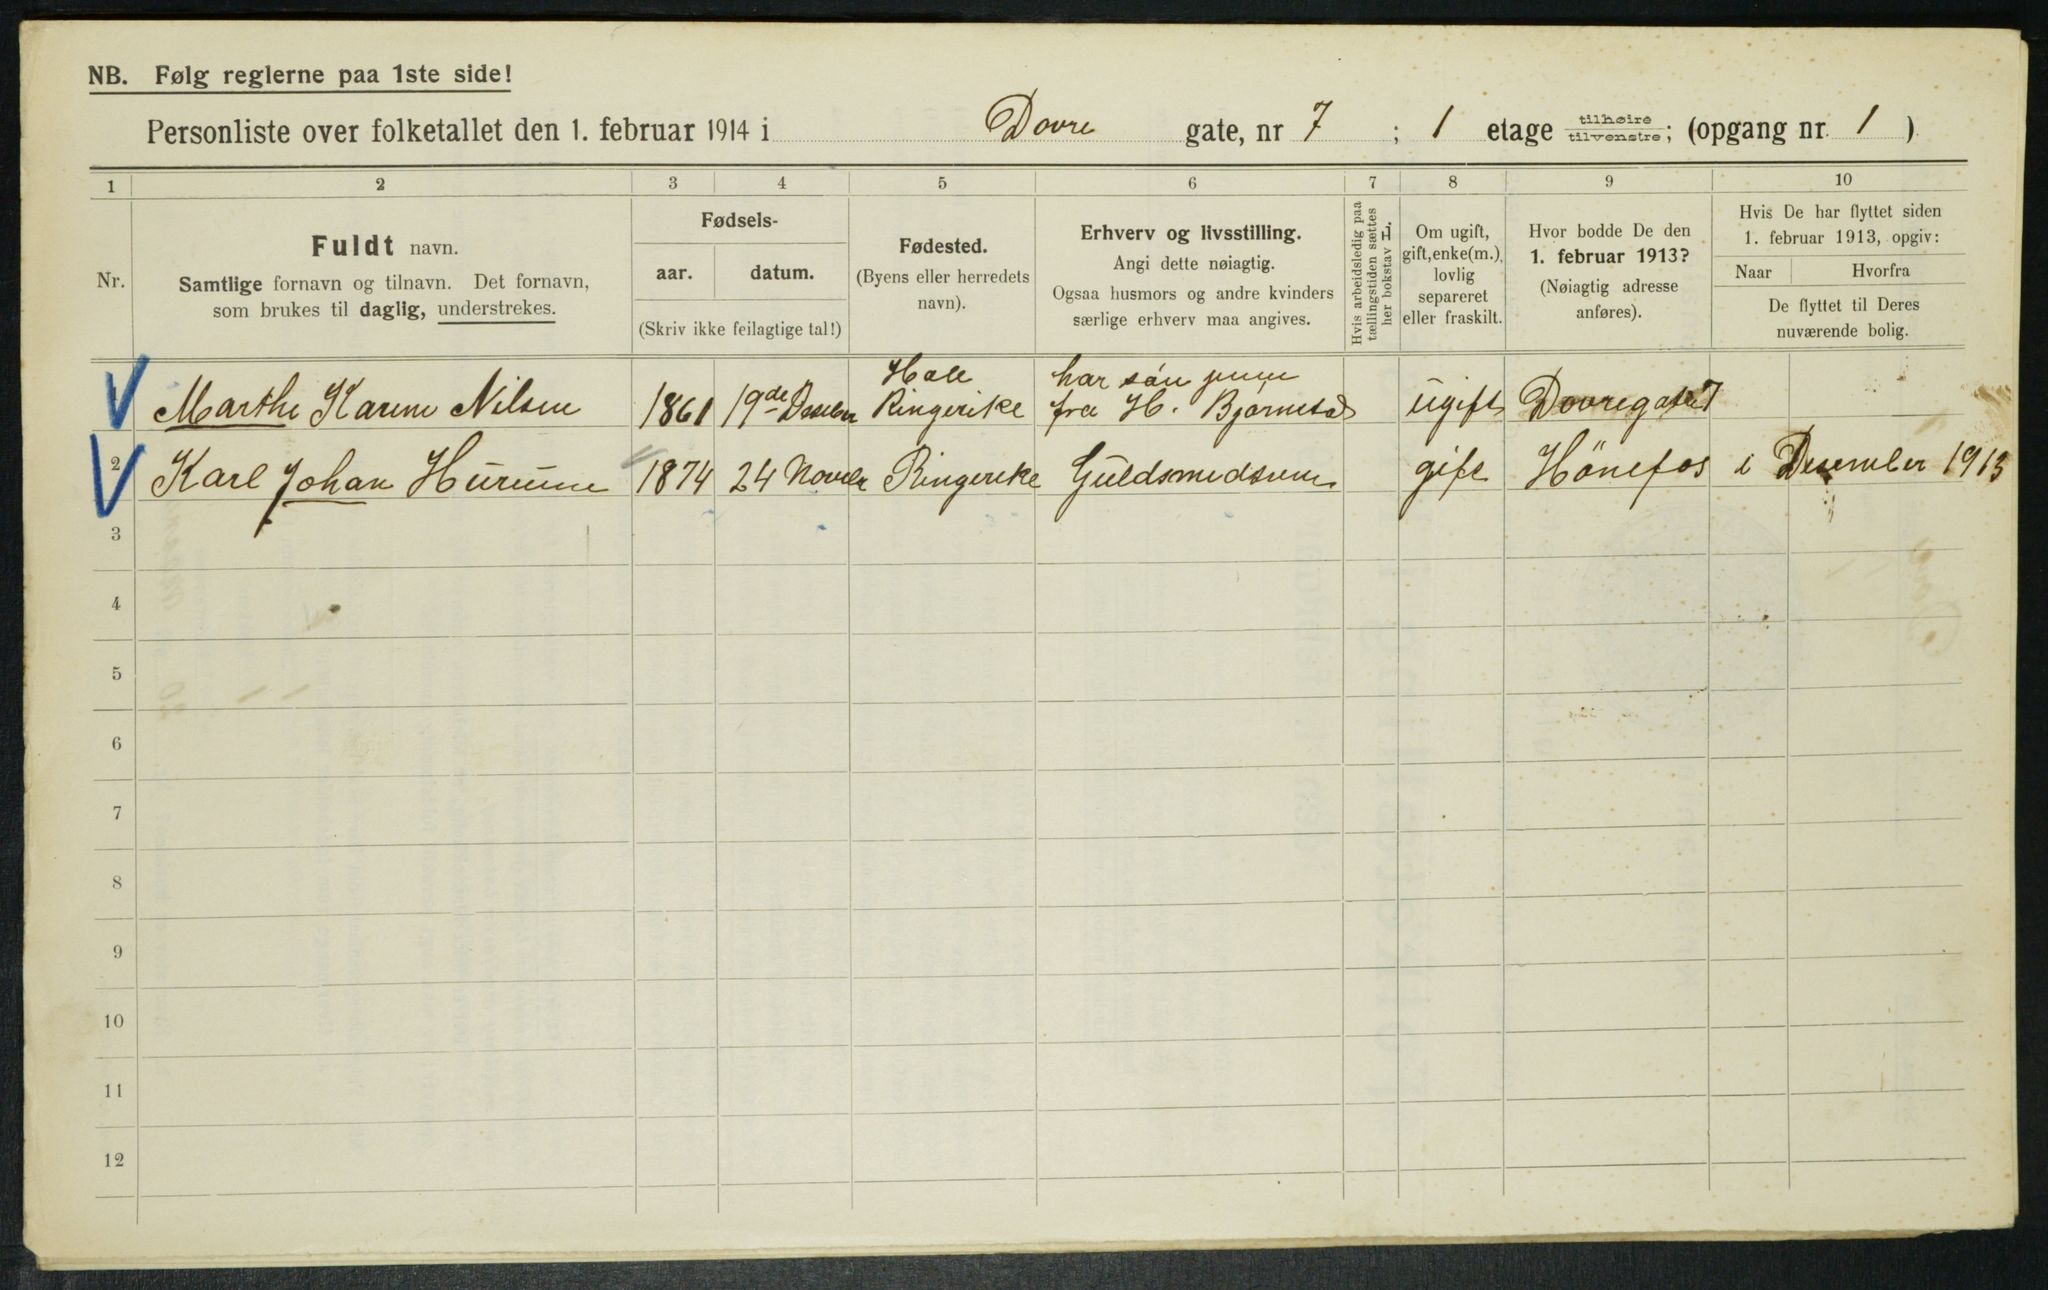 NB. Følg reglerne paa 1ste side!
Personliste over folketallet den 1. februar 1914 i Dovre gate, nr 7 ; 1 etage tilhøire tilvenstre; (opgang nr. 1 )
1 2 3 4 5 6 7 8 9 10
Nr.
Fuldt navn.
Samtlige fornavn og tilnavn. Det fornavn,
som brukes til daglig, understrekes.
Fødsels-
aar. datum.
(Skriv ikke feilagtige tal!)
Fødested.
(Byens eller herredets
navn).
Erhverv og livsstilling.
Angi dette nøiagtig.
Ogsaa husmors og andre kvinders
særlige erhverv maa angives.
Hvis arbeidsledig paa
tællingstiden sættes
her bokstav L.
Om ugift,
gift, enke(m.),
lovlig
separeret
eller fraskilt.
Hvor bodde De den
1. februar 1913?
(Nøiagtig adresse
anføres).
Hvis De har flyttet siden
1. februar 1913, opgiv:
Naar Hvorfra
De flyttet til Deres
nuværende bolig.
Marthe Karine Nilsen 1861 19de Hole Ringerike har fra H. ugift Dovregate 7
2 Karl Johan Hurum 1874 24 Novbr Ringerike Guldsmedsven gift Hönefos i Desember 1913
3
4
5
6
7
8
9
10
11
12